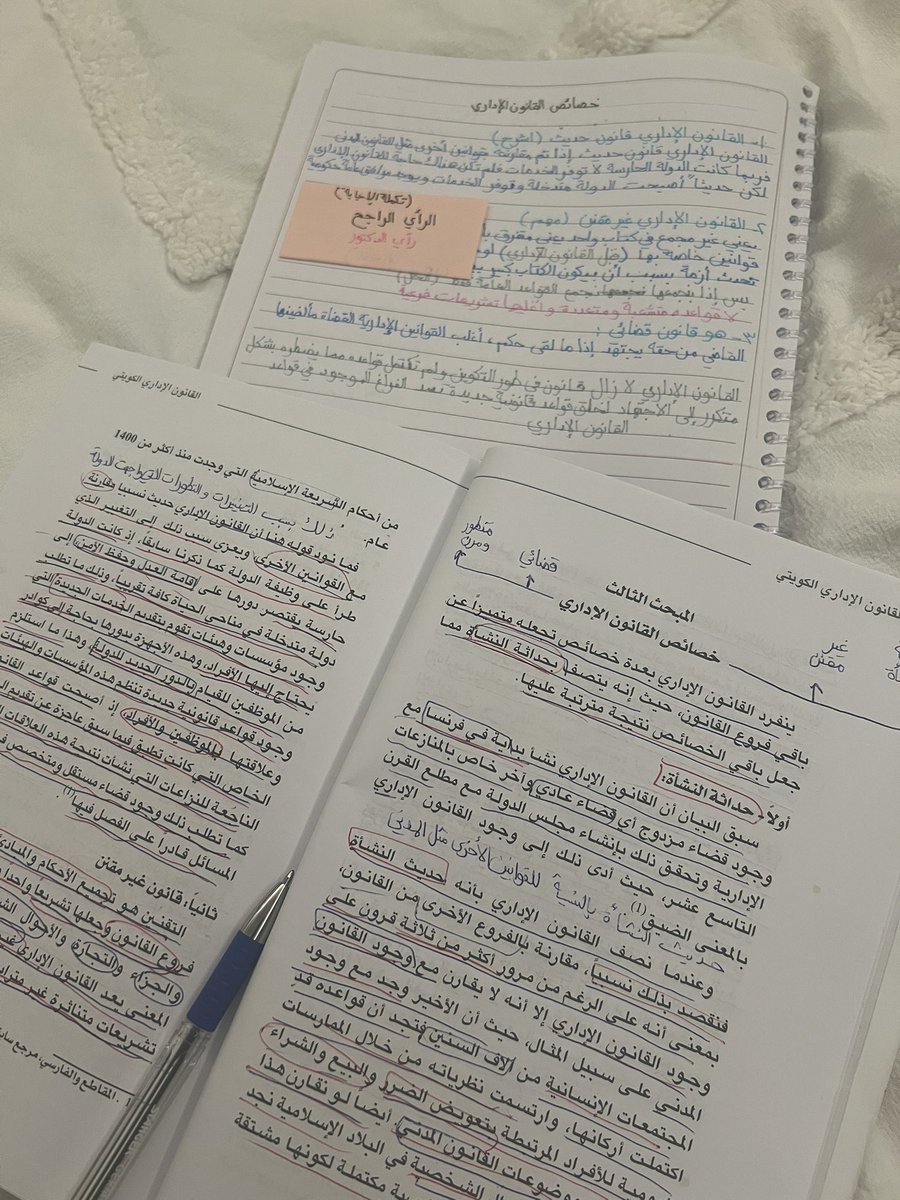 خصائص القانون الإداري
١- القانون الإداري قانون حديث (اشرح)
القانون الإداري قانون حديث إذا تم مقارنته بقوانين أخرى مثل القانون المدني
فربما كانت الدولة الحارسة لا توفر الخدمات فلم تكن هناك حاجة للقانون الإداري
لكن حديثاً أصبحت الدولة متدخلة وتوفر الخدمات ويوجد مرافق عامة حكومية
(تكملة الإجابة)
الرأي الراجح
رأي الدكتور
٢- القانون الإداري غير مقنن (مهم)
يعني غير مجمع في كتاب واحد يعني متفرق
قوانين خاصة بها (مثل القانون الإداري)
تحدث أزمة بسبب أن بيكون الكتاب كبير
بس إذا بنجمعها نجمع القواعد العامة فقط
لأن قواعده متشعبة ومتعددة و أغلبها تشريعات فرعية
٣- هو قانون قضائي :
القاضي من حقه يجتهد إذا ما لقى حكم، أغلب القوانين الإدارية القضاة مألفينها
القانون الإداري لا زال قانون في طور التكوين ولم تكتمل قواعده مما يضطره بشكل
متكرر إلى الاجتهاد لخلق قواعد قانونية جديدة تسد الفراغ الموجود في قواعد
القانون الإداري
القانون الإداري الكويتي
متطور
ومرن
قضائي
غير
مقنن
المبحث الثالث
خصائص القانون الإداري
ينفرد القانون الإداري بعدة خصائص تجعله متميزاً عن
باقي فروع القانون، حيث إنه يتصف بحداثة النشأة مما
جعل باقي الخصائص نتيجة مترتبة عليها.
أولاً- حداثة النشأة:
سبق البيان أن القانون الإداري نشأ بداية في فرنسا مع
وجود قضاء مزدوج أي قضاء عادي وآخر خاص بالمنازعات
الإدارية وتحقق ذلك بإنشاء مجلس الدولة مع مطلع القرن
التاسع عشر، حيث أدى ذلك إلى وجود القانون الإداري
بالمعنى الضيق(١)
حديث النشأة بالنسبة للقوانين الأخرى مثل المدني
وعندما نصف القانون الإداري بأنه حديث النشأة
فنقصد بذلك نسبياً، مقارنة بالفروع الأخرى من القانون،
بمعنى أنه على الرغم من مرور أكثر من ثلاثة قرون على
وجود القانون الإداري إلا أنه لا يقارن مع وجود القانون
المدني على سبيل المثال، حيث أن الأخير وجد مع وجود
المجتمعات الإنسانية من آلاف السنين فتجد أن قواعده قد
اكتملت أركانها، وارتسمت نظرياته من خلال الممارسات
اليومية للأفراد المرتبطة بتعويض الضرر والبيع والشراء
موضوعات القانون المدني، أيضاً لو نقارن هذا
الشخصية في البلاد الإسلامية نجد
مكتملة لكونها مشتقة
القانون الإداري الكويتي
من أحكام الشريعة الإسلامية التي وجدت منذ أكثر من 1400
عام.
ذلك بسبب التغيرات والتطورات التي واجهت الدولة
فما نود قوله هنا أن القانون الإداري حديث نسبياً مقارنة
مع القوانين الأخرى، ويعزى سبب ذلك إلى التغيير الذي
طرأ على وظيفة الدولة كما ذكرنا سابقاً، إذ كانت الدولة
حارسة يقتصر دورها على إقامة العدل وحفظ الأمن إلى
دولة متدخلة في مناحي الحياة كافة تقريباً، وذلك ما تطلب
وجود مؤسسات وهيئات تقوم بتقديم الخدمات الجديدة التي
يحتاج إليها الأفراد، وهذه الأجهزة بدورها بحاجة إلى كوادر
من الموظفين للقيام بالدور الجديد للدولة وهذا ما استلزم
وجود قواعد قانونية جديدة تنظم هذه المؤسسات والهيئات
وعلاقتها بالموظفين والأفراد، إذ أصبحت قواعد القانون
الخاص التي كانت تطبق فيما سبق عاجزة عن تقديم
الناجعة للنزاعات التي نشأت نتيجة هذه العلاقات
كما تطلب ذلك وجود قضاء مستقل ومتخصص في
المسائل قادراً على الفصل فيها(١).
ثانياً، قانون غير مقنن
التقنين هو تجميع الأحكام والمبادئ
فروع القانون وجعلها تشريعاً واحداً
والجزاء والتجارة والأحوال
المعنى يعد القانون الإداري غير
تشريعات متناثرة غير مترابطة
المقاطع والفارسي، مرجع سابق